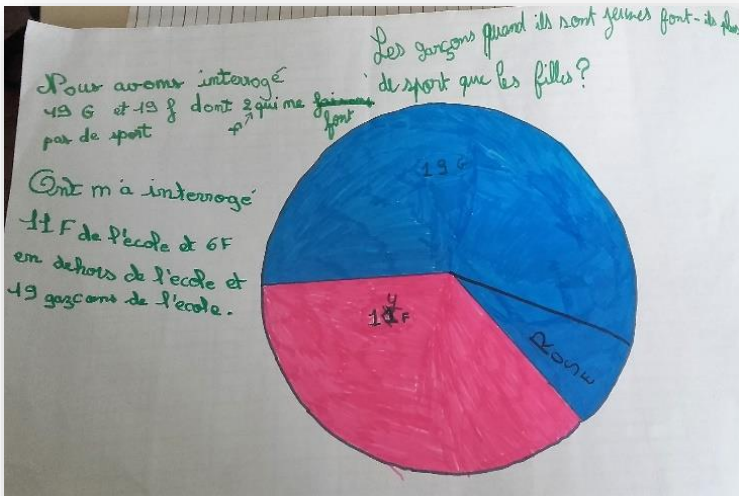 Les garçons quand ils sont jeunes font-ils plus
de sport que les filles?
Nous avons interrogé
19 G et 19 f dont 2 qui ne font
pas de sport
Ont m'a interrogé
11 F de l'école et 6F
en dehors de l'ecole et
19 garçons de l'ecole.
19 G
F
ROSE